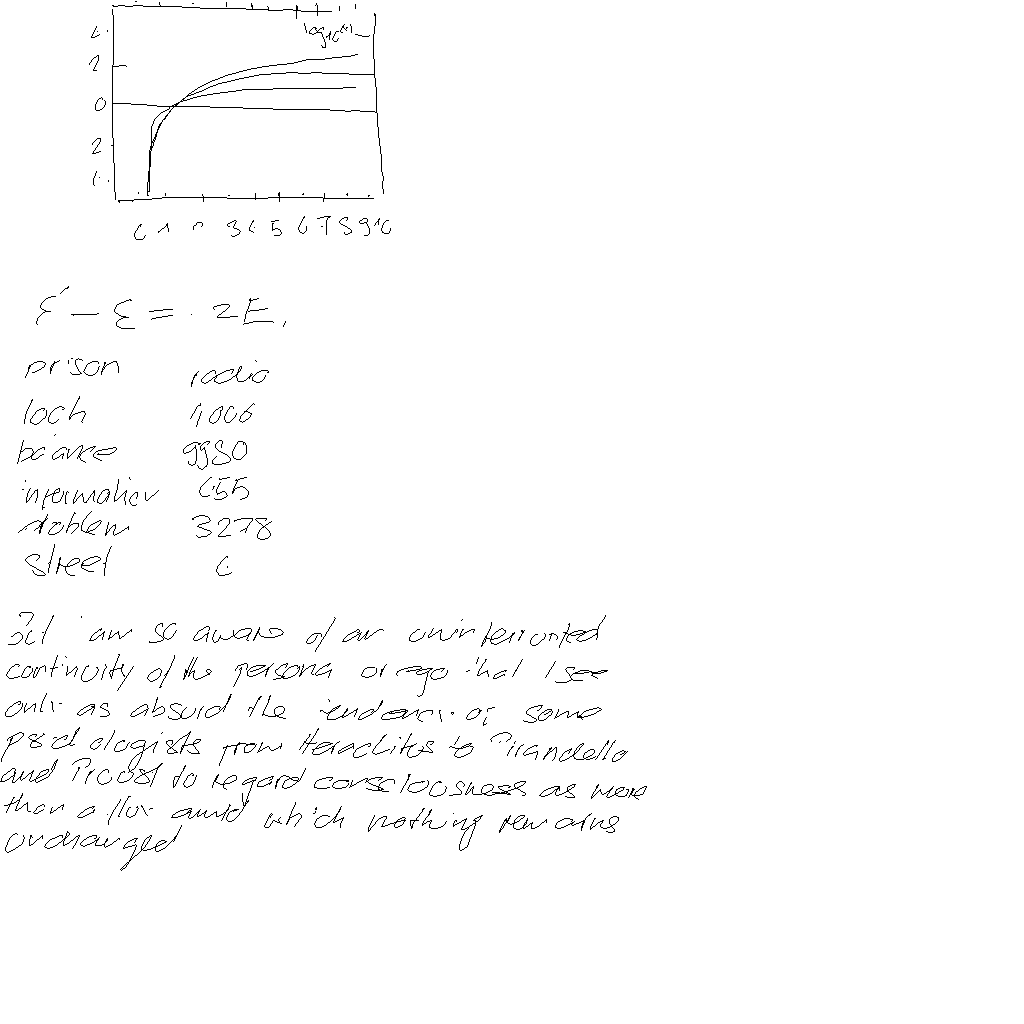 log10(x)
2
0
2
0 1 2 3 4 5 6 7 8 9 10
ε' - ε = 2E,
prison radio
loch 1006
balance 9980
information 655
problem 3278
street 6
But I am so aware of an uninterrupted
continuity of the persona or ego that I see
only as absurd the tendency of some
psychologists from Heraclitus to Pirandello
and Proust to regard consciousness as more
than a flux amid which nothing remains
unchanged